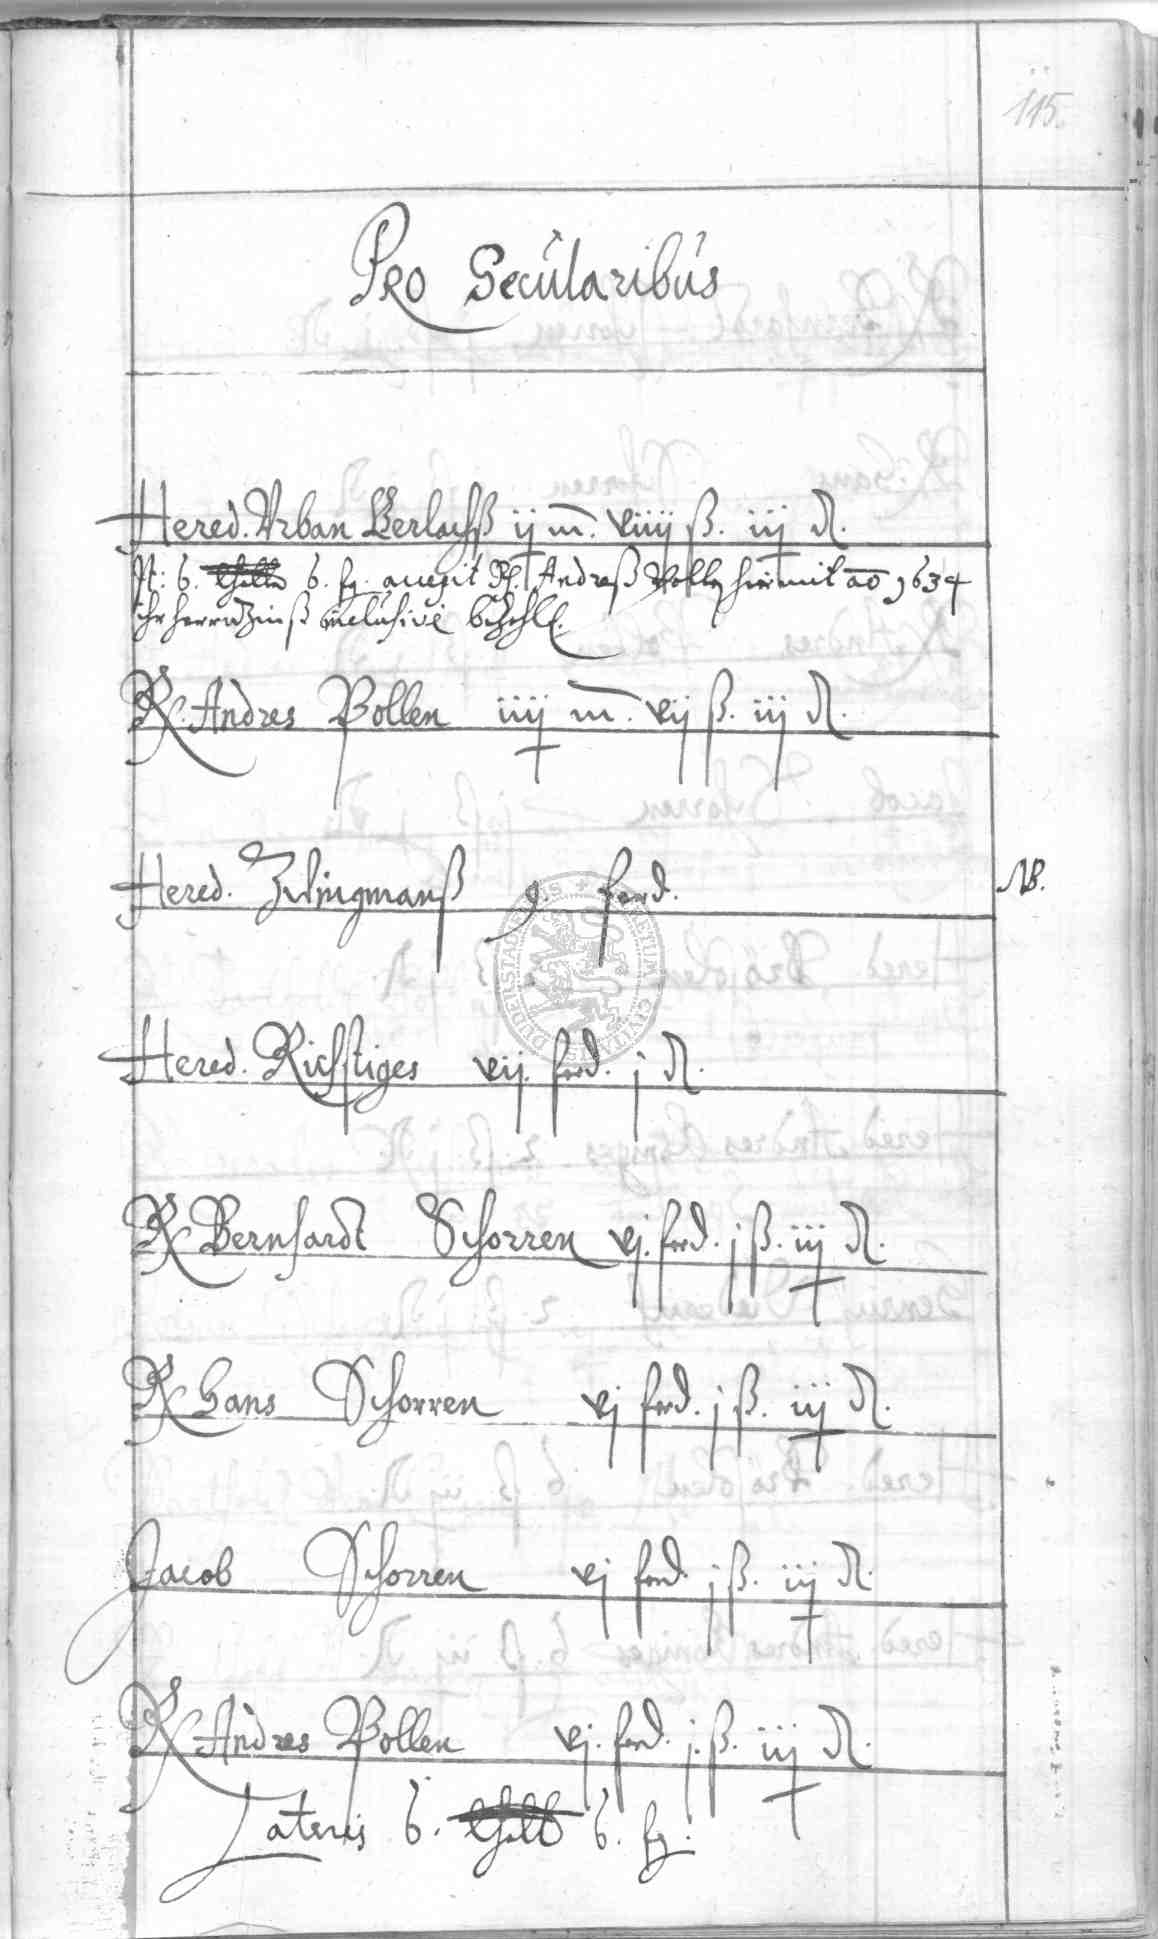 115.
Pro Secularibus
Hered. Urban Gerlachß ij m. viiij ß. iij d.
N: 6. 6. fg. accepit H. Andreß Polle hiermit ao 1634
ihr herrnzinß inclusive bezhlt.
R. Andres Pollen iiij m. vij ß. iij d.
Hered. Zwingmanß 9. ferd. NB.
Hered. Richstiges vij. ferd. j d.
R Bernhardt Schorren vj. ferd. j ß. iij d.
R Hans Schorren vj ferd. j ß. iij d.
Jacob Schorren vj ferd. j ß. iij d.
R. Andres Pollen vj. ferd. j. ß. iij d.
Lateris 6. 6. fg.